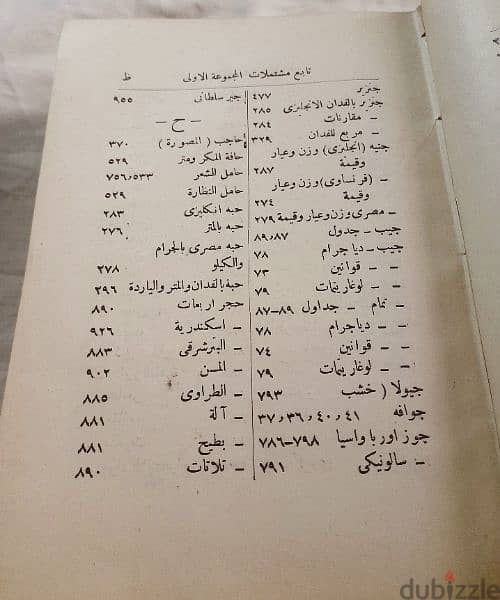 تابع مشتملات المجموعة الاولى
ظ
جنزير ٤٧٧
جنزير بالفدان الانجليزى ٢٨٥
– مقارنات ٢٨٤
– مربع للفدان ٣٢٩
جنيه (انجليزى) وزن وعيار
وقيمة ٢٨٧
– (فرنساوى) وزن وعيار
وقيمة ٢٧٤
– مصرى وزن وعيار وقيمة ٢٧٩
جيب – جدول ٨٧ و ٨٩
جيب – دياجرام ٧٨
– – قوانين ٧٣
– – لوغاريتمات ٧٩
– تمام – جداول ٨٩–٨٧
– – دياجرام ٧٨
– – قوانين ٧٤
– – لوغاريتمات ٧٩
جيولا ( خشب ٧٩٣
جوافه ٤١ و ٤٠ و ٣٦ و ٣٧
جوز اوربا واسيا ٧٩٨–٧٨٦
– سالونيكى ٧٩١
جير سلطانى ٩٥٥
– ح –
حاجب ( المصورة ) ٣٧٠
حافة المنكر ومتر ٥٢٩
حامل للشعر ٥٣٣ و ٧٥٦
حامل النظارة ٥٢٩
حبه انكليزى ٢٨٣
حبه بالمتر ٢٧٦
حبه مصرى بالجرام
والكيلو ٢٧٨
حبة بالفدان والمتر والياردة ٢٩٦
حجر اربعات ٨٩٠
– اسكندرية ٩٢٦
– البترشرقى ٨٨٣
– المسن ٩٠٢
– الطراوى ٨٨٥
– آلة ٨٨١
– بطيح ٨٨١
– تلاتات ٨٩٠
dubizzle